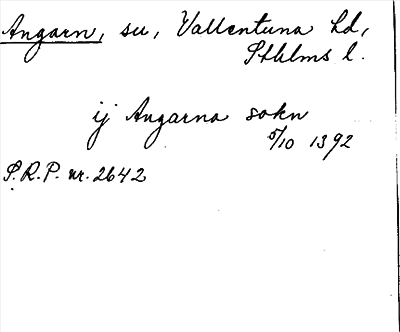 Angarn, su, Vallentuna hd,
Sthlms l.
ij Angarna sokn
5/10 1392
S.R.P. nr. 2642